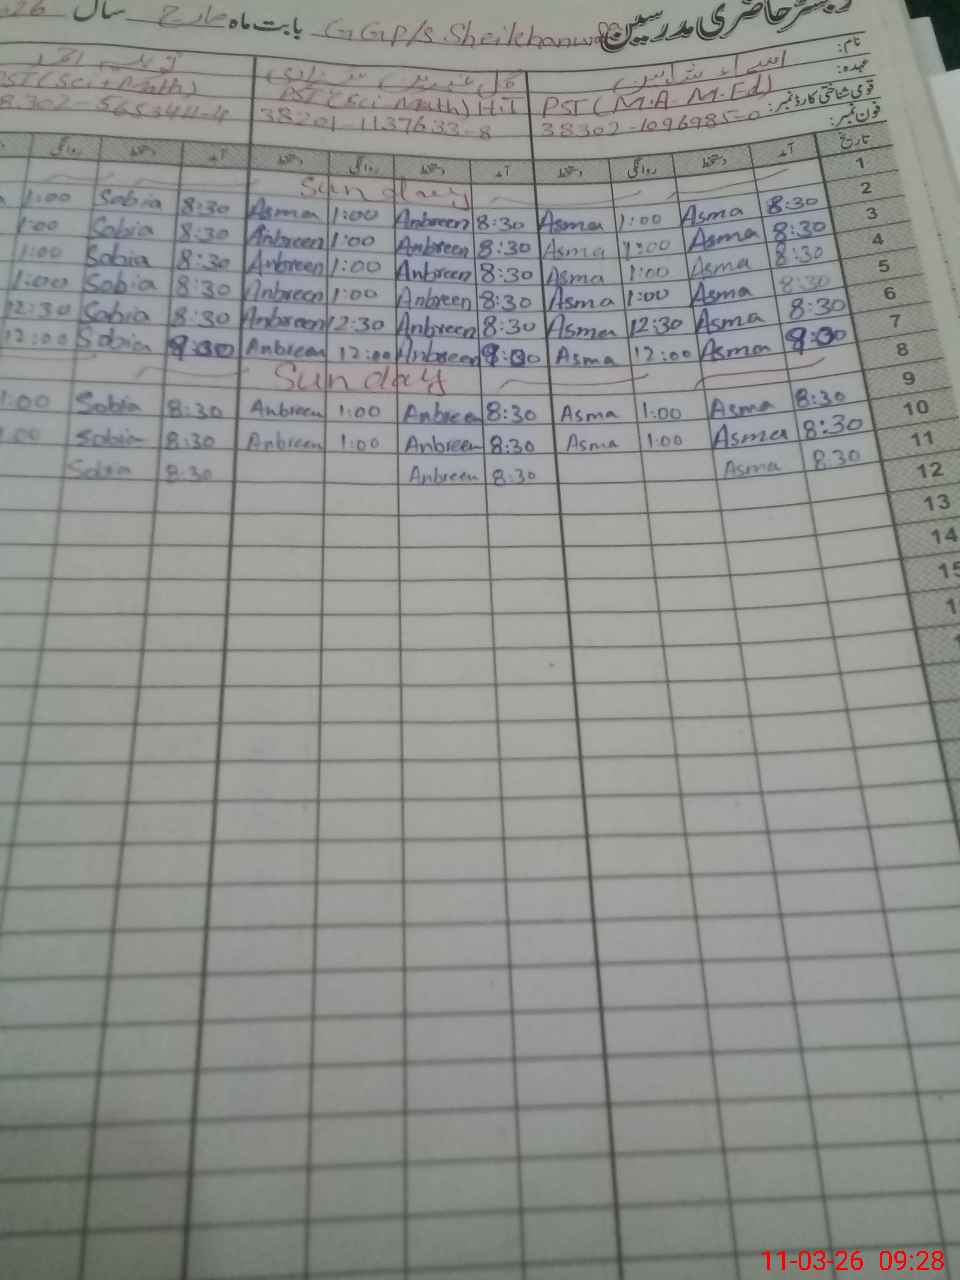 رجسٹر حاضری مدرسین G.G.P/S. Sheikhanwala بابت ماہ مارچ سال 26
نام: اسماء شاہین
عہدہ: PST (M.A. M.Ed) PST (Sci Math) H.T PST (Sci+Math)
قومی شناختی کارڈ نمبر: 38302-1096985-0 38201-1137633-8
فون نمبر:
تاریخ آمد دستخط روانگی دستخط آمد دستخط روانگی دستخط آمد دستخط روانگی
1 Sunday
2 8:30 Asma 1:00 Asma 8:30 Anbreen 1:00 Asma 8:30 Sobia 1:00
3 8:30 Asma 1:00 Asma 8:30 Anbreen 1:00 Anbreen 8:30 Sobia 1:00
4 8:30 Asma 1:00 Asma 8:30 Anbreen 1:00 Anbreen 8:30 Sobia 1:00
5 8:30 Asma 1:00 Asma 8:30 Anbreen 1:00 Anbreen 8:30 Sobia 1:00
6 8:30 Asma 12:30 Asma 8:30 Anbreen 12:30 Anbreen 8:30 Sobia 12:30
7 Asma 12:00 Asma Anbreen 12:00 Anbreen Sobia 12:00
8 Sunday
9 8:30 Asma 1:00 Asma 8:30 Anbreen 1:00 Anbreen 8:30 Sobia 1:00
10 8:30 Asma 1:00 Asma 8:30 Anbreen 1:00 Anbreen 8:30 Sobia :00
11 8:30 Asma 8:30 Anbreen 8:30 Sobia
12
13
14
15
11-03-26 09:28